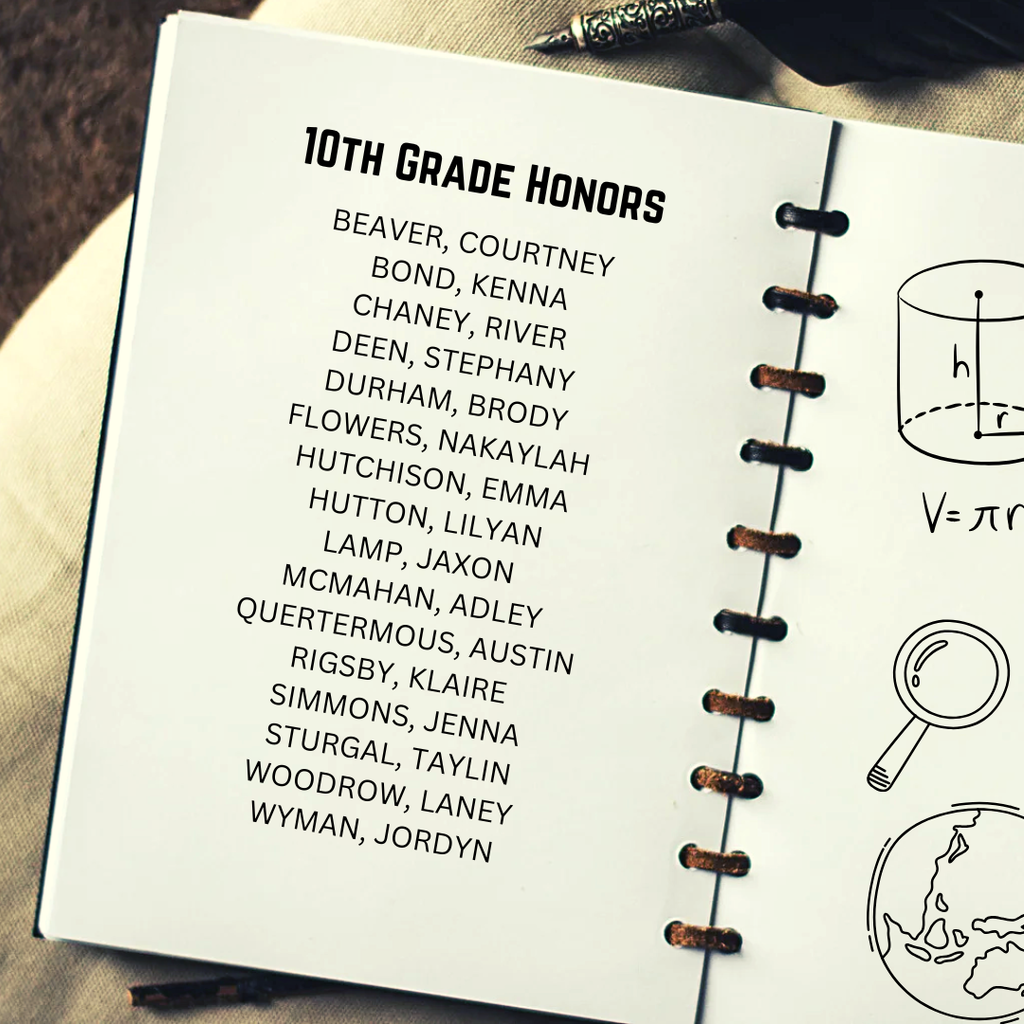 10TH GRADE HONORS
BEAVER, COURTNEY
BOND, KENNA
CHANEY, RIVER
DEEN, STEPHANY
DURHAM, BRODY
FLOWERS, NAKAYLAH
HUTCHISON, EMMA
HUTTON, LILYAN
LAMP, JAXON
MCMAHAN, ADLEY
QUERTERMOUS, AUSTIN
RIGSBY, KLAIRE
SIMMONS, JENNA
STURGAL, TAYLIN
WOODROW, LANEY
WYMAN, JORDYN
h
r
V= πr